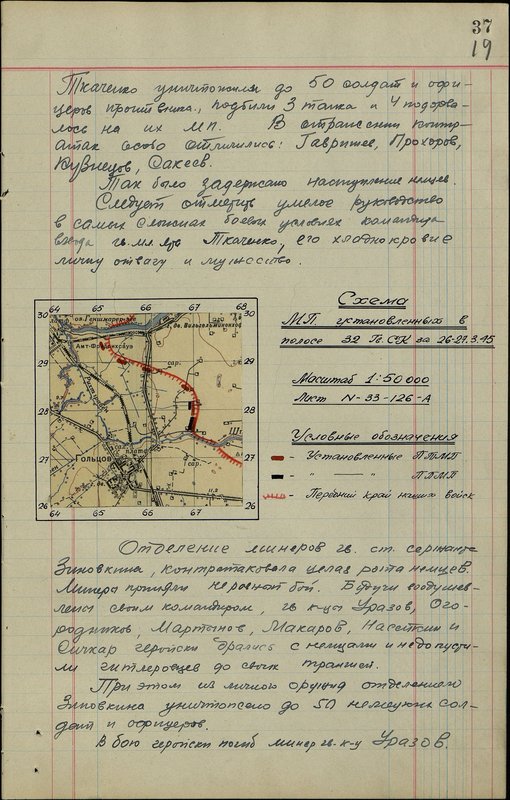 37
19
Ткаченко уничтожили до 50 солдат и офи-
церов противника, подбили 3 танка и 4 подорва-
лось на их МП. В отражении контр-
атак особо отличились: Гаврышев, Прохоров,
Кузнецов, Сакеев.
Так было задержано наступление немцев.
Следует отметить умелое руководство
в самых сложных боевых условиях командира
взвода гв. мл. л-та Ткаченко, его хладнокровие
личну отвагу и мужество.
Схема
МП. установленных в
полосе 32 Гв.СК за 26-27.3.45
Масштаб 1:50 000
Лист N-33-126-А
Условные обозначения
- Установленные ПТМП
- " " ППМП
- Передний край наших войск
64 65 66 67 68
30 30
29 29
28 28
27 27
26 26
64 65 66 67
сар.
Гольцов
сар.
Отделение минеров гв. ст. сержанта
Зиновкина, контратаковала целая рота немцев.
Минеры приняли неравный бой. Будучи воодушев-
лены своим командиром, гв к-цы Уразов, Ого-
родников, Мартынов, Макаров, и
Сичкар геройски дрались с немцами и не допусти-
ли гитлеровцев до своих траншей.
При этом из личного оружия отделением
Зиновкина уничтожено до 50 немецких сол-
дат и офицеров.
В бою геройски погиб минер гв. к-ц Уразов.